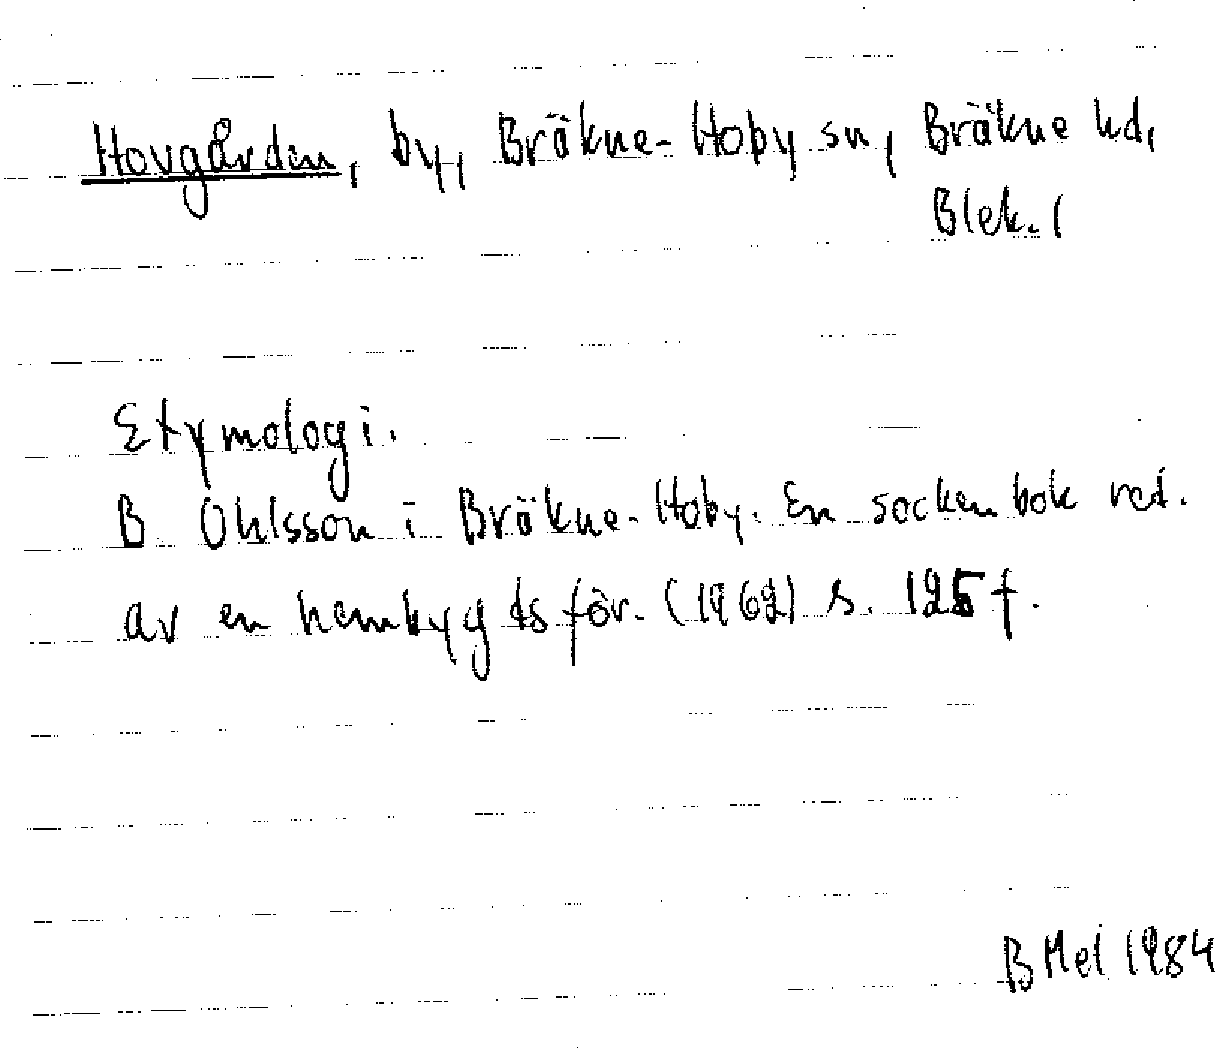 Hovgården, by, Bräkne-Hoby sn, Bräkne hd,
Blek. l
Etymologi.
B Ohlsson i Bräkne-Hoby. En sockenbok red.
av en hembygdsför. (1962) s. 125 f.
B Mel 1984